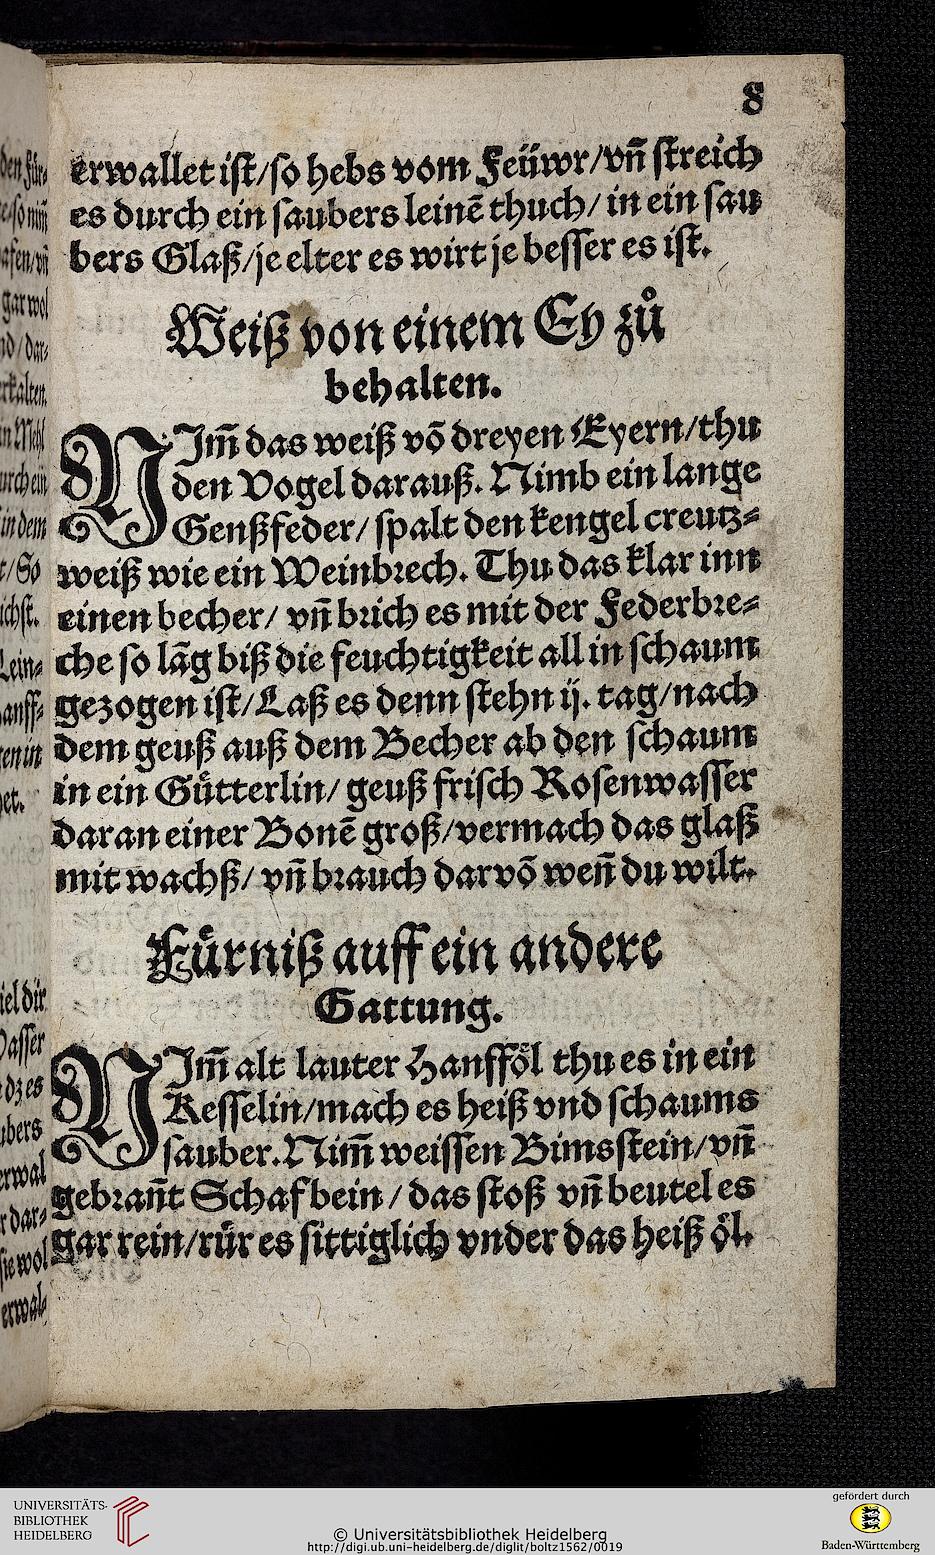 8
erwallet ist/so hebs vom Feüwr/vñ streich
es durch ein saubers leinē thuch/ in ein sau
bers Glaß/je elter es wirt je besser es ist.
Weiß von einem Ey zů
behalten.
NIm̃ das weiß võ dreyen Eyern/thu
den Vogel darauß. Nimb ein lange
Genßfeder/ spalt den kengel creutz⸗
weiß wie ein Weinbrech. Thu das klar inn
einen becher/ vñ brich es mit der Federbre⸗
che so lãg biß die feuchtigkeit all in schaum
gezogen ist/Laß es denn stehn ij. tag/nach
dem geuß auß dem Becher ab den schaum
in ein Gütterlin/ geuß frisch Rosenwasser
daran einer Bonē groß/vermach das glaß
mit wachß/ vñ brauch darvõ weñ du wilt.
Fürniß auff ein andere
Gattung.
NIm̃ alt lauter Hanfföl thu es in ein
Kesselin/mach es heiß vnd schaums
sauber. Nim̃ weissen Bimsstein/vñ
gebrañt Schafbein/ das stoß vñ beutel es
gar rein/rür es sittiglich vnder das heiß öl.
UNIVERSITÄTS-
BIBLIOTHEK
HEIDELBERG
© Universitätsbibliothek Heidelberg
http://digi.ub.uni-heidelberg.de/diglit/boltz1562/0019
gefördert durch
Baden-Württemberg